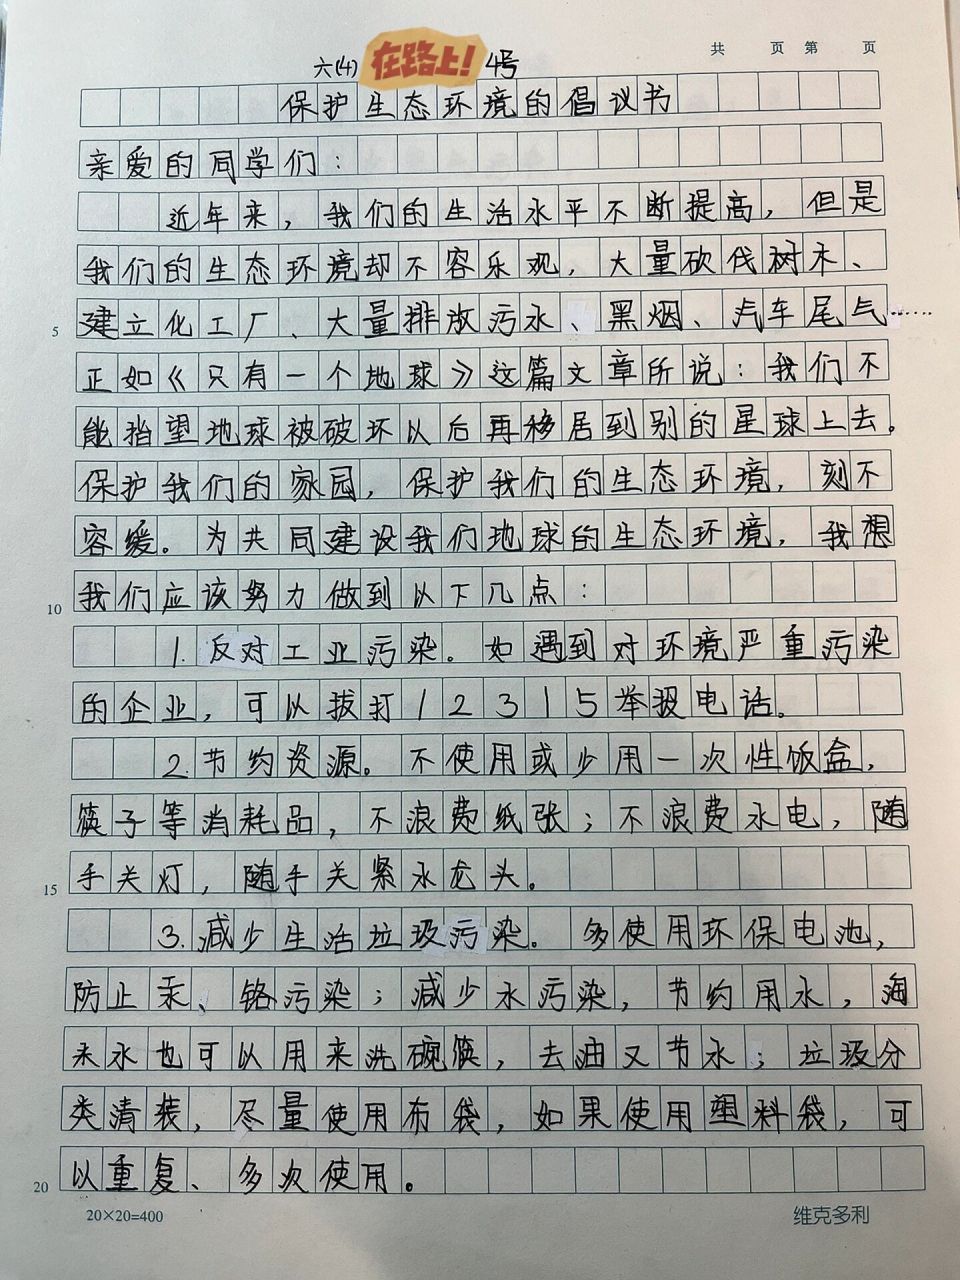 共 页 第 页
六(4) 在路上! 4号
保护生态环境的倡议书
亲爱的同学们:
近年来,我们的生活水平不断提高,但是
我们的生态环境却不容乐观,大量砍伐树木、
5 建立化工厂、大量排放污水、黑烟、汽车尾气……
正如《只有一个地球》这篇文章所说:我们不
能指望地球被破环以后再移居到别的星球上去。
保护我们的家园,保护我们的生态环境,刻不
容缓。为共同建设我们地球的生态环境,我想
10 我们应该努力做到以下几点:
1.反对工业污染。如遇到对环境严重污染
的企业,可以拔打12315举报电话。
2.节约资源。不使用或少用一次性饭盒,
筷子等消耗品,不浪费纸张;不浪费水电,随
15 手关灯,随手关紧水龙头。
3.减少生活垃圾污染。多使用环保电池,
防止汞、铬污染;减少水污染,节约用水,淘
米水也可以用来洗碗筷,去油又节水;垃圾分
类清装,尽量使用布袋,如果使用塑料袋,可
20 以重复、多次使用。
20×20=400 维克多利